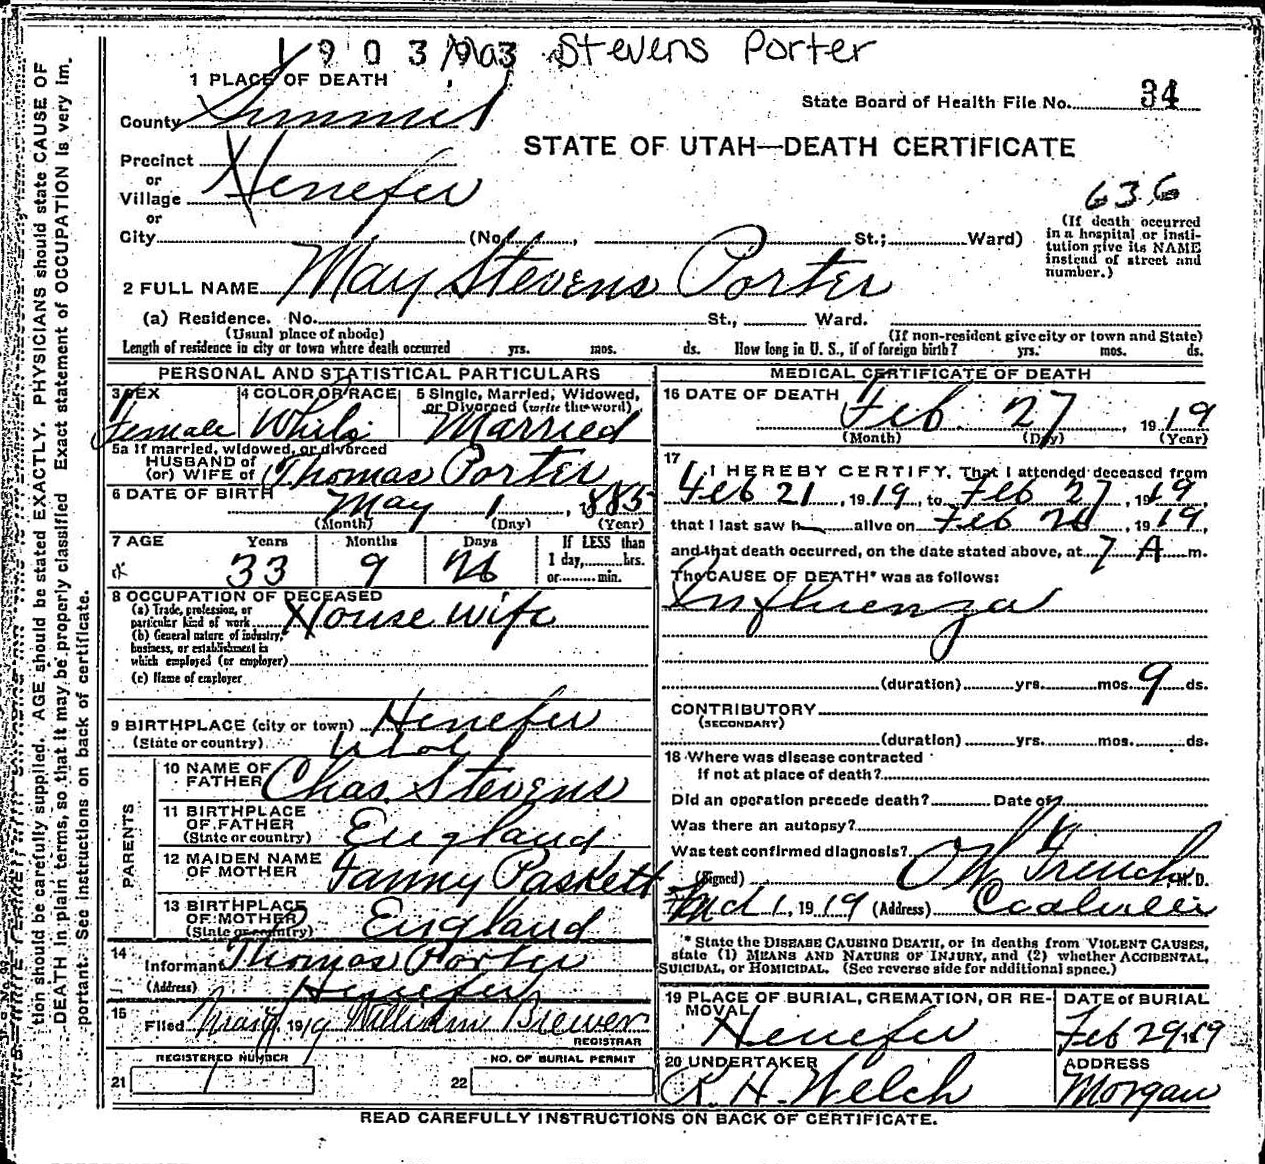 1903 903 Stevens Porter
1 PLACE OF DEATH
State Board of Health File No. 34
County Summit
STATE OF UTAH—DEATH CERTIFICATE
Precinct
or
Village Henefer
636
or
City (No. , St.; Ward)
(If death occurred in a hospital or institution give its NAME instead of street and number.)
2 FULL NAME May Stevens Porter
(a) Residence. No. St., Ward.
(Usual place of abode) (If non-resident give city or town and State)
Length of residence in city or town where death occurred yrs. mos. ds. How long in U. S., if of foreign birth? yrs. mos. ds.
PERSONAL AND STATISTICAL PARTICULARS
3 SEX 4 COLOR OR RACE 5 Single, Married, Widowed,
or Divorced (write the word)
Female White Married
5a If married, widowed, or divorced
HUSBAND of
(or) WIFE of Thomas Porter
6 DATE OF BIRTH May 1, 1885
(Month) (Day) (Year)
7 AGE Years Months Days If LESS than
1 day, hrs.
or min.
33 9 26
8 OCCUPATION OF DECEASED
(a) Trade, profession, or
particular kind of work House wife
(b) General nature of industry,
business, or establishment in
which employed (or employer)
(c) Name of employer
9 BIRTHPLACE (city or town) Henefer
(State or country) Utah
PARENTS
10 NAME OF
FATHER Chas. Stevens
11 BIRTHPLACE
OF FATHER
(State or country) England
12 MAIDEN NAME
OF MOTHER Fanny Paskett
13 BIRTHPLACE
OF MOTHER
(State or country) England
14
Informant Thomas Porter
(Address) Henefer
15
Filed 1919 William Brewer
REGISTRAR
REGISTERED NUMBER NO. OF BURIAL PERMIT
21 1 22
MEDICAL CERTIFICATE OF DEATH
16 DATE OF DEATH Feb. 27, 1919
(Month) (Day) (Year)
17
I HEREBY CERTIFY, That I attended deceased from
Feb 21, 1919, to Feb 27, 1919,
that I last saw h alive on Feb 26, 1919,
and that death occurred, on the date stated above, at 7 A m.
The CAUSE OF DEATH* was as follows:
Influenza
(duration) yrs. mos. 9 ds.
CONTRIBUTORY
(SECONDARY)
(duration) yrs. mos. ds.
18 Where was disease contracted
if not at place of death?
Did an operation precede death? Date of
Was there an autopsy?
Was test confirmed diagnosis?
(Signed) French, M. D.
Mch 1, 1919 (Address) Coalville
* State the DISEASE CAUSING DEATH, or in deaths from VIOLENT CAUSES,
state (1) MEANS AND NATURE OF INJURY, and (2) whether ACCIDENTAL,
SUICIDAL, or HOMICIDAL. (See reverse side for additional space.)
19 PLACE OF BURIAL, CREMATION, OR RE-
MOVAL DATE of BURIAL
Henefer Feb 29 1919
20 UNDERTAKER ADDRESS
R. H. Welch Morgan
READ CAREFULLY INSTRUCTIONS ON BACK OF CERTIFICATE.
tion should be carefully supplied. AGE should be stated EXACTLY. PHYSICIANS should state CAUSE OF
DEATH in plain terms, so that it may be properly classified Exact statement of OCCUPATION is very im-
portant. See instructions on back of certificate.